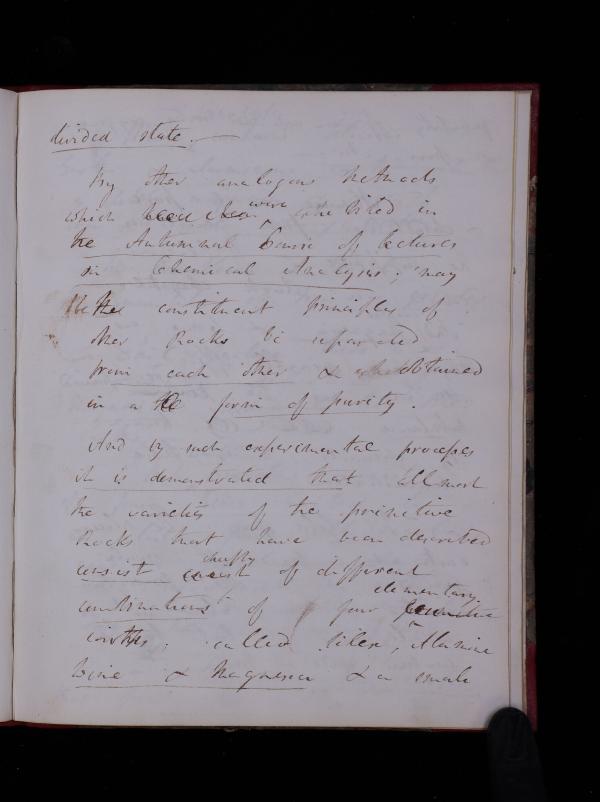 divided state. —
By other analogous Methods
which were exhibited in
the Autumnal Course of Lectures
on Chemical Analysis; may
the constituent principles of
other Rocks be separated
from each other & obtained
in a form of purity.
And by such experimental processes
it is demonstrated that allmost
the varieties of the primitive
Rocks that have been described
consist chiefly of different
combinations of four elementary
earths; called Silex, Alumine
Lime & Magnesia & a small